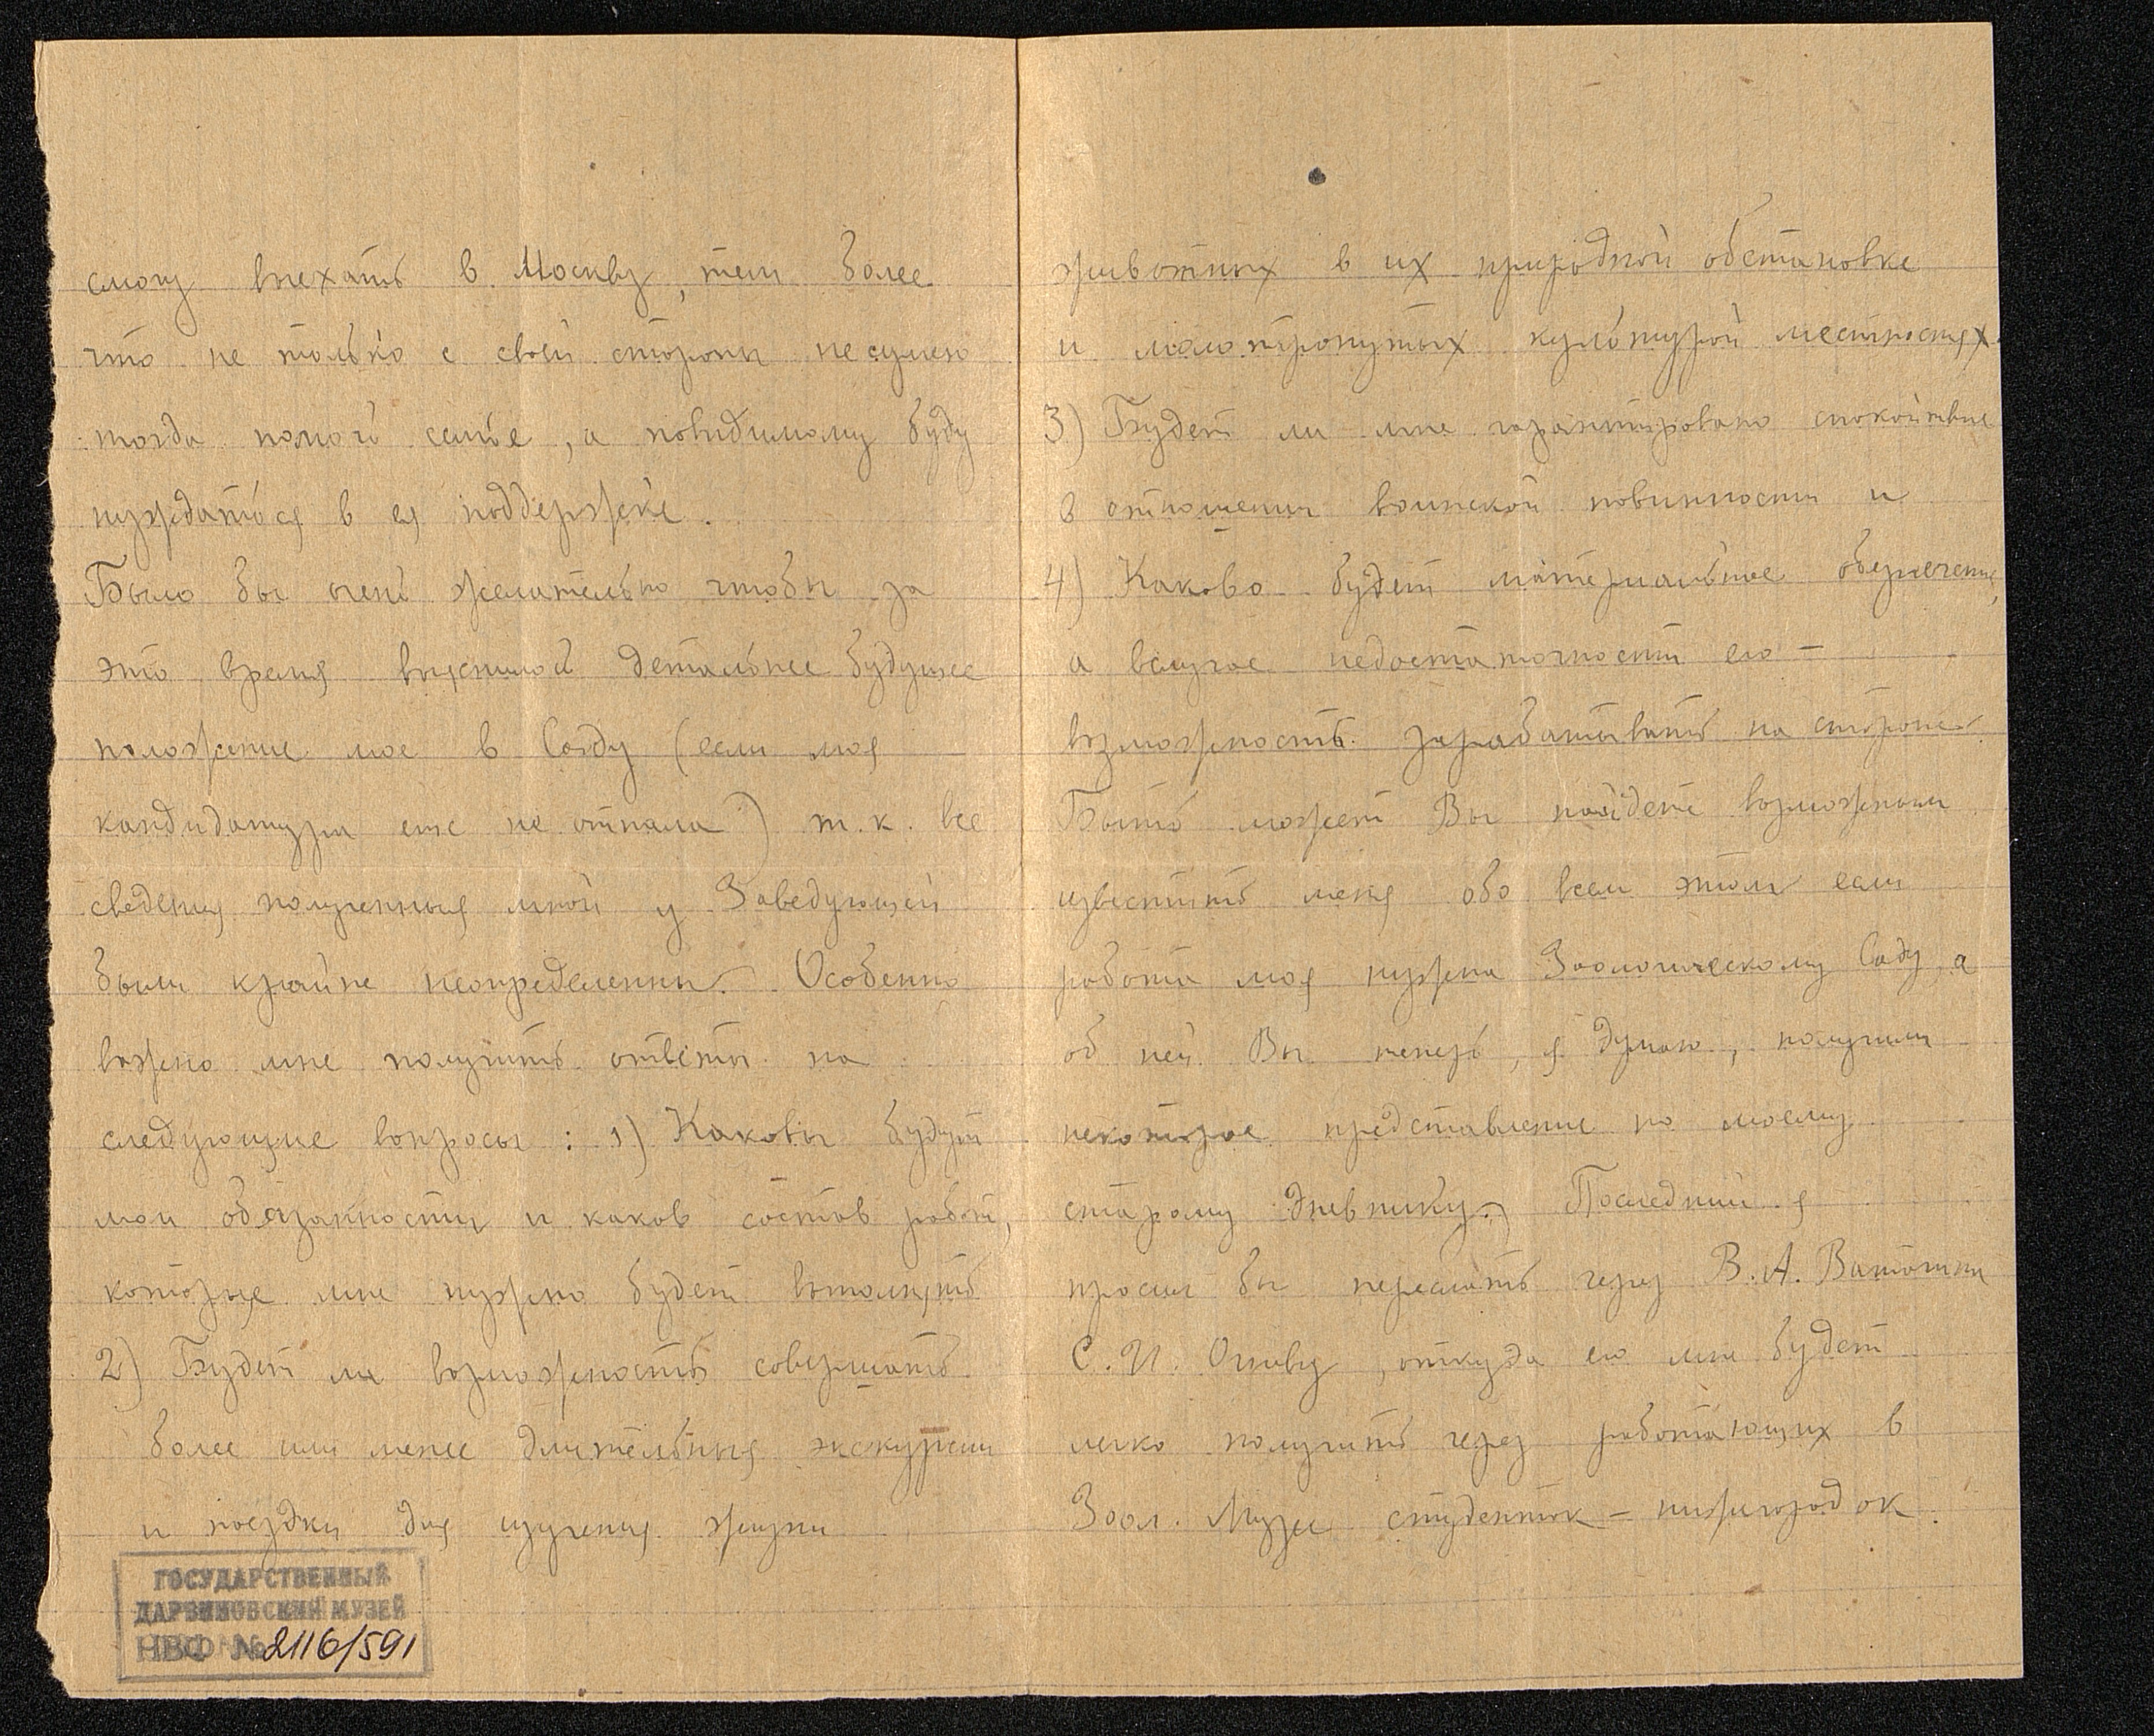 смогу выехать в Москву, тем более
что не только с своей стороны не сумею
тогда помочь семье, а повидимому буду
нуждаться в ея поддержке.
Было бы очень желательно чтобы за
это время выяснилось детальнее будущее
положение мое в Саду (если моя
кандидатура еще не отпала) т.к. все
сведения полученныя мной у Заведующей
были крайне неопределенны. Особенно
важно мне получить ответы на
следующие вопросы: 1) Каковы будут
мои обязанности и каков состав работ,
которые мне нужно будет выполнять
2) Будет ли возможность совершать
более или менее длительныя экскурсии
и поездки для изучения жизни
ГОСУДАРСТВЕННЫЙ
ДАРВИНОВСКИЙ МУЗЕЙ
НВФ № 2116/591
животных в их природной обстановке
и малотронутых культурой местностях.
3) Будет ли мне гарантировано спокойствие
в отношении воинской повинности и
4) Каково будет материальное обеспечение,
а вслучае недостаточности его –
возможность зарабатывать на стороне.
Быть может Вы найдете возможным
известить меня обо всем этом если
работа моя нужна Зоологическому Саду, а
об ней Вы теперь, я думаю, получили
некоторое представление по моему
старому дневнику. Последний я
просил бы переслать через В.А. Ватагина
С.И. Огневу, откуда его мне будет
легко получить через работающих в
Зоол. Музее студенток – нижегородок.